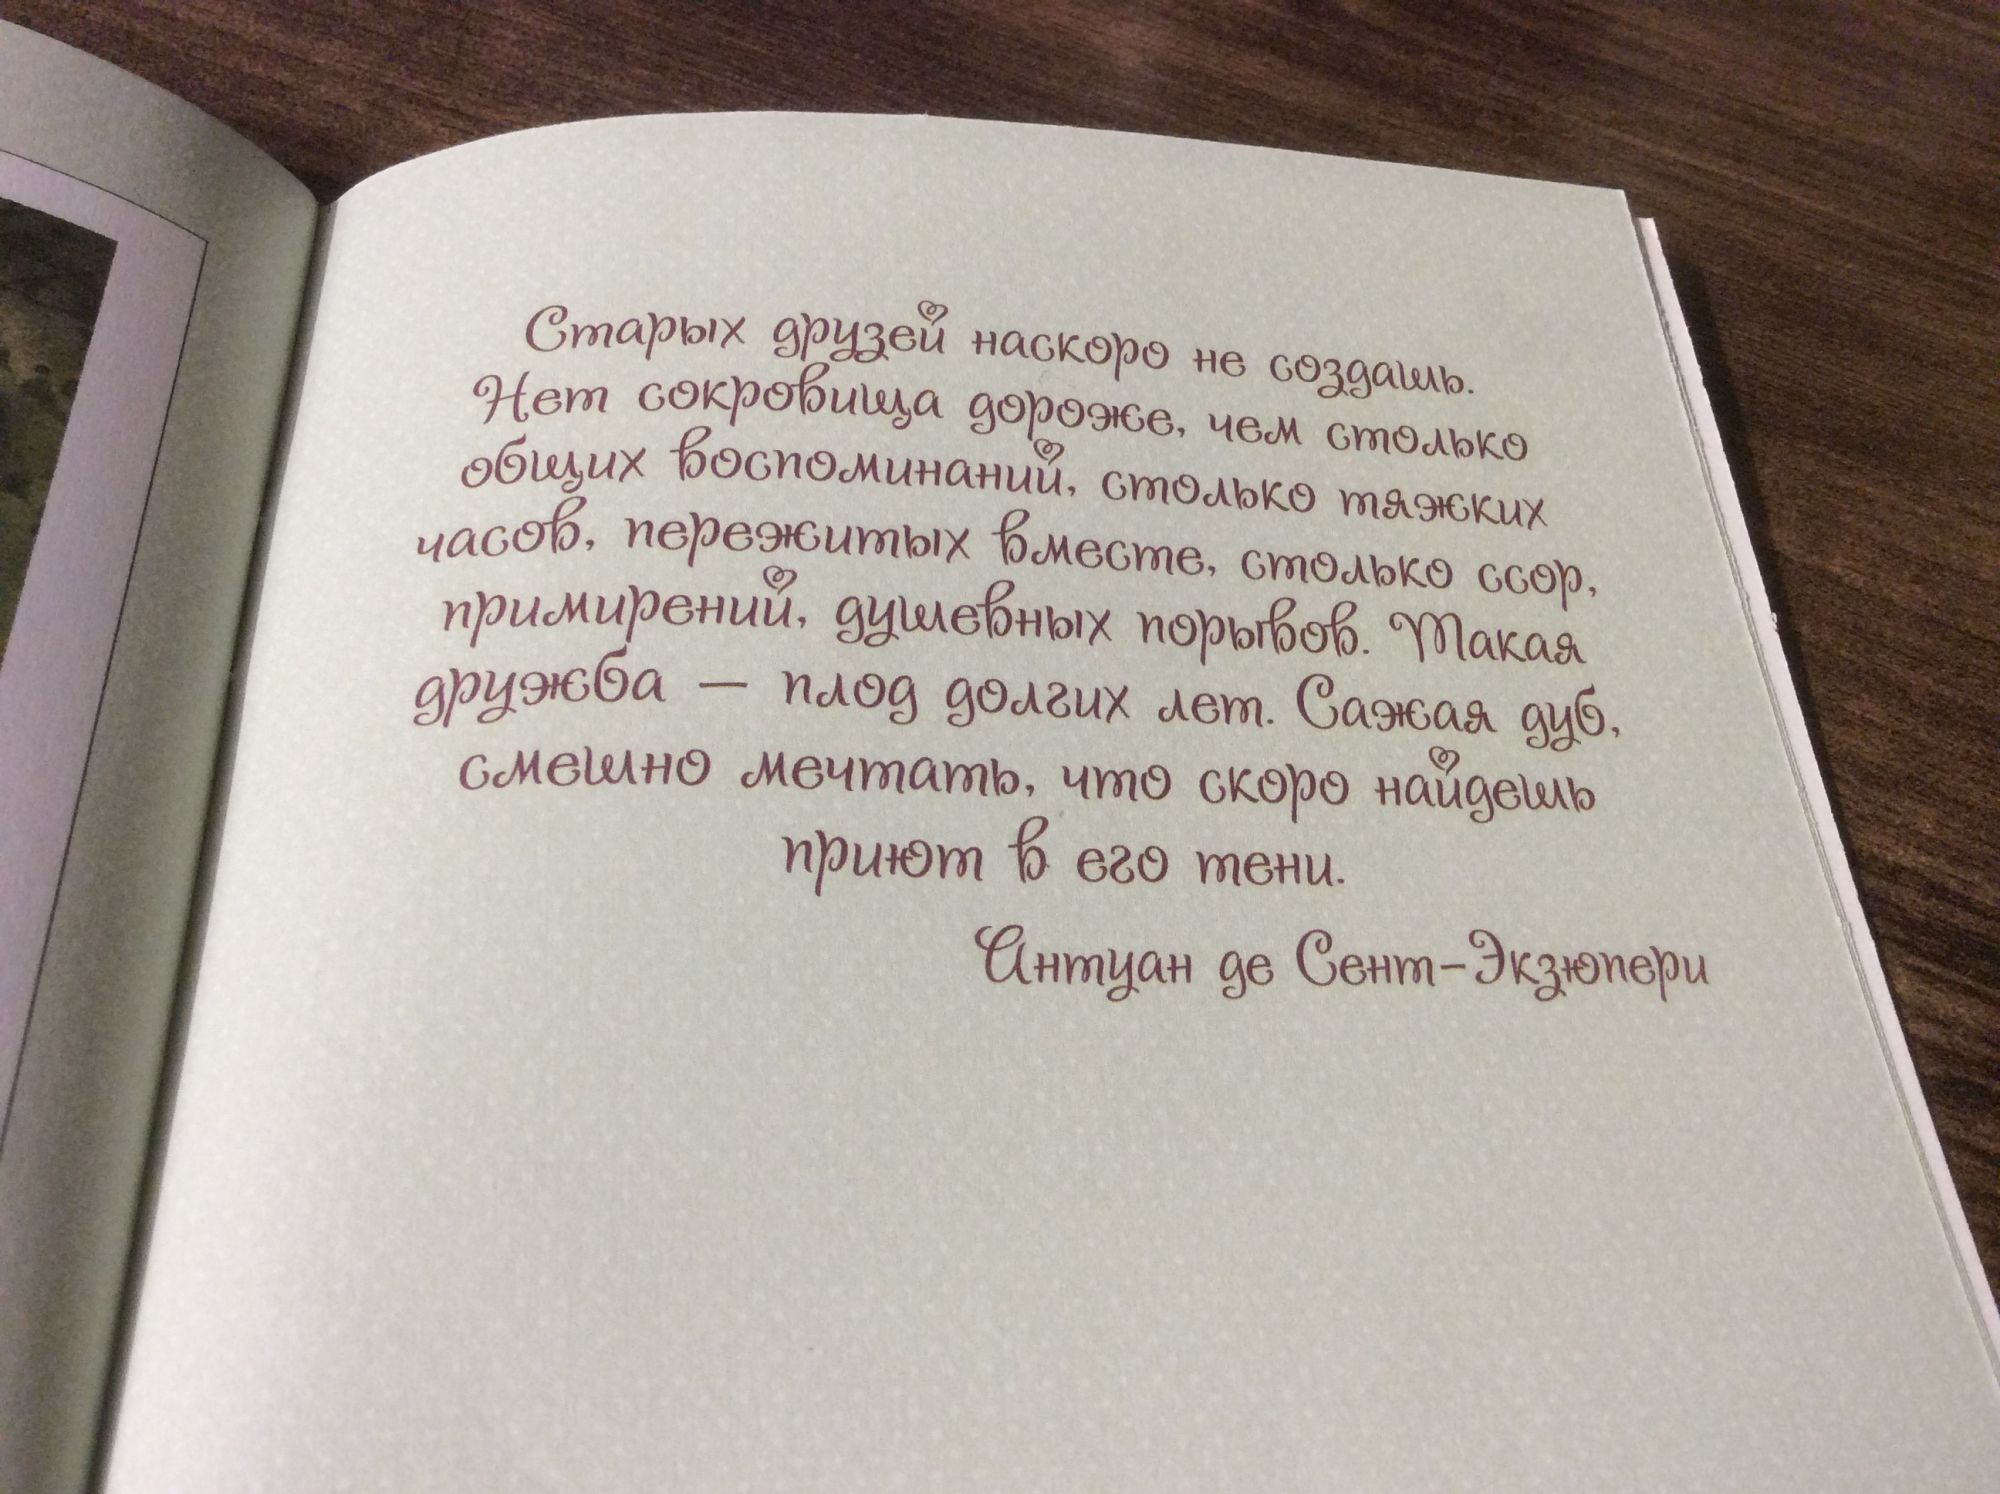 Старых друзей наскоро не создашь.
Нет сокровища дороже, чем столько
общих воспоминаний, столько тяжких
часов, пережитых вместе, столько ссор,
примирений, душевных порывов. Такая
дружба — плод долгих лет. Сажая дуб,
смешно мечтать, что скоро найдешь
приют в его тени.
Антуан де Сент-Экзюпери